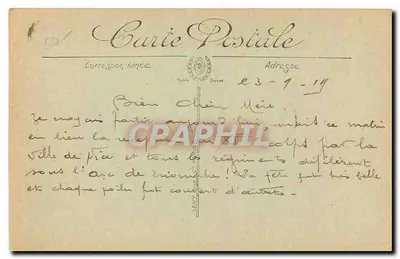 Carte Postale
Correspondance
Adresse
23-9-19.
Bien Cher
Je croyais partir aujourd'hui mais ce matin
eu lieu la corps par la
ville de Nice et tous les régiments défilèrent
sous l'arc de triomphe! La fête fut très belle
et chaque poilu fut couvert
CPA